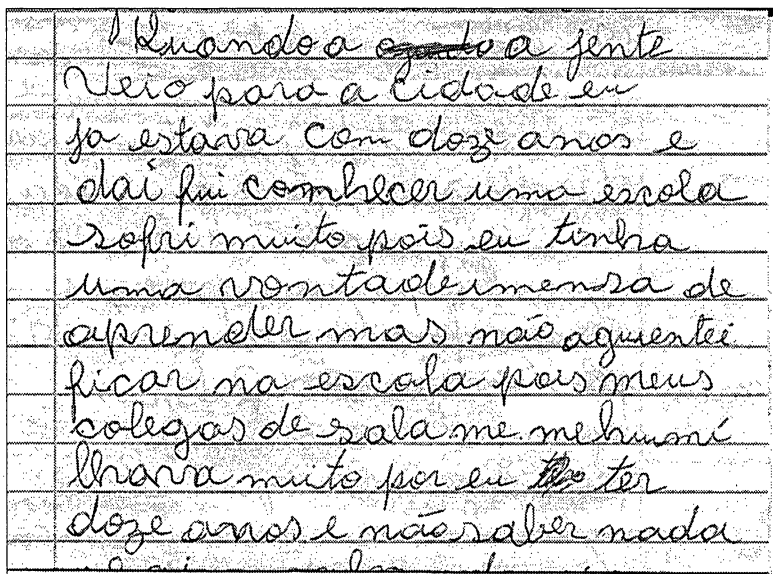 Quando a a jente
Veio para a cidade eu
ja estava com doze anos e
daí fui comhecer uma escola
sofri muito pois eu tinha
uma vontade imensa de
aprender mas não aguentei
ficar na escola pois meus
colegas de sala me me humi
lhava muito por eu ter
doze anos e não saber nada